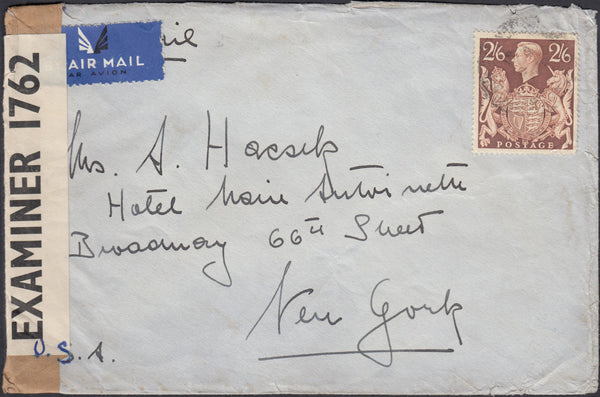 AIR MAIL
PAR AVION
2/6 2/6
POSTAGE
EXAMINER 1762
Mrs. A. Hacsek
Hotel Marie Antoinette
Broadway 66th Street
New York
U.S.A.